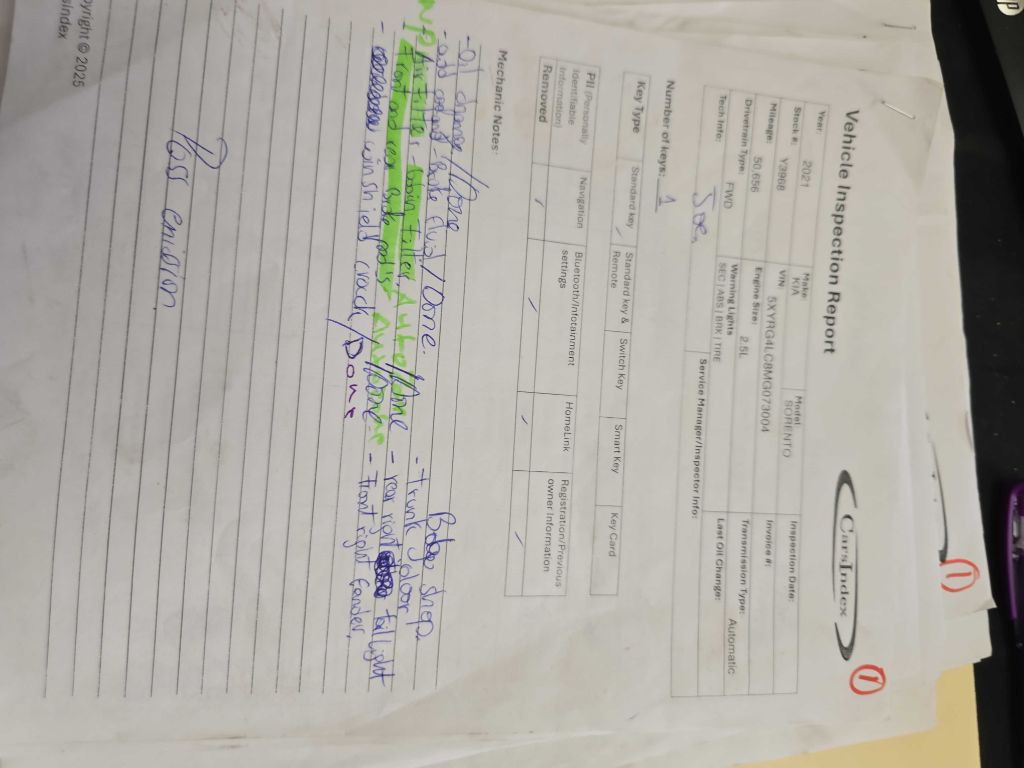 Vehicle Inspection Report
CARSINDEX
1
1
Year: 2021
Make: KIA
Model: SORENTO
Inspection Date:
Stock #: Y3968
VIN: 5XYRG4LC8MG073004
Invoice #:
Mileage: 50,656
Engine Size: 2.5L
Transmission Type: Automatic
Drivetrain Type: FWD
Warning Lights
SEC | ABS | BRK | TIRE
Last Oil Change:
Tech Info:
Service Manager/Inspector Info:
Number of keys: 1
Key Type
Standard key
Standard key & Remote
Switch Key
Smart Key
Key Card
PII (Personally Identifiable Information) Removed
Navigation
Bluetooth/Infotainment settings
HomeLink
Registration/Previous owner Information
Mechanic Notes:
- oil change/Done
Shop
- trunk
- rear right tail light
- Front right fender,
winshield crack/Done
Pass emision
pyright © 2025
sIndex